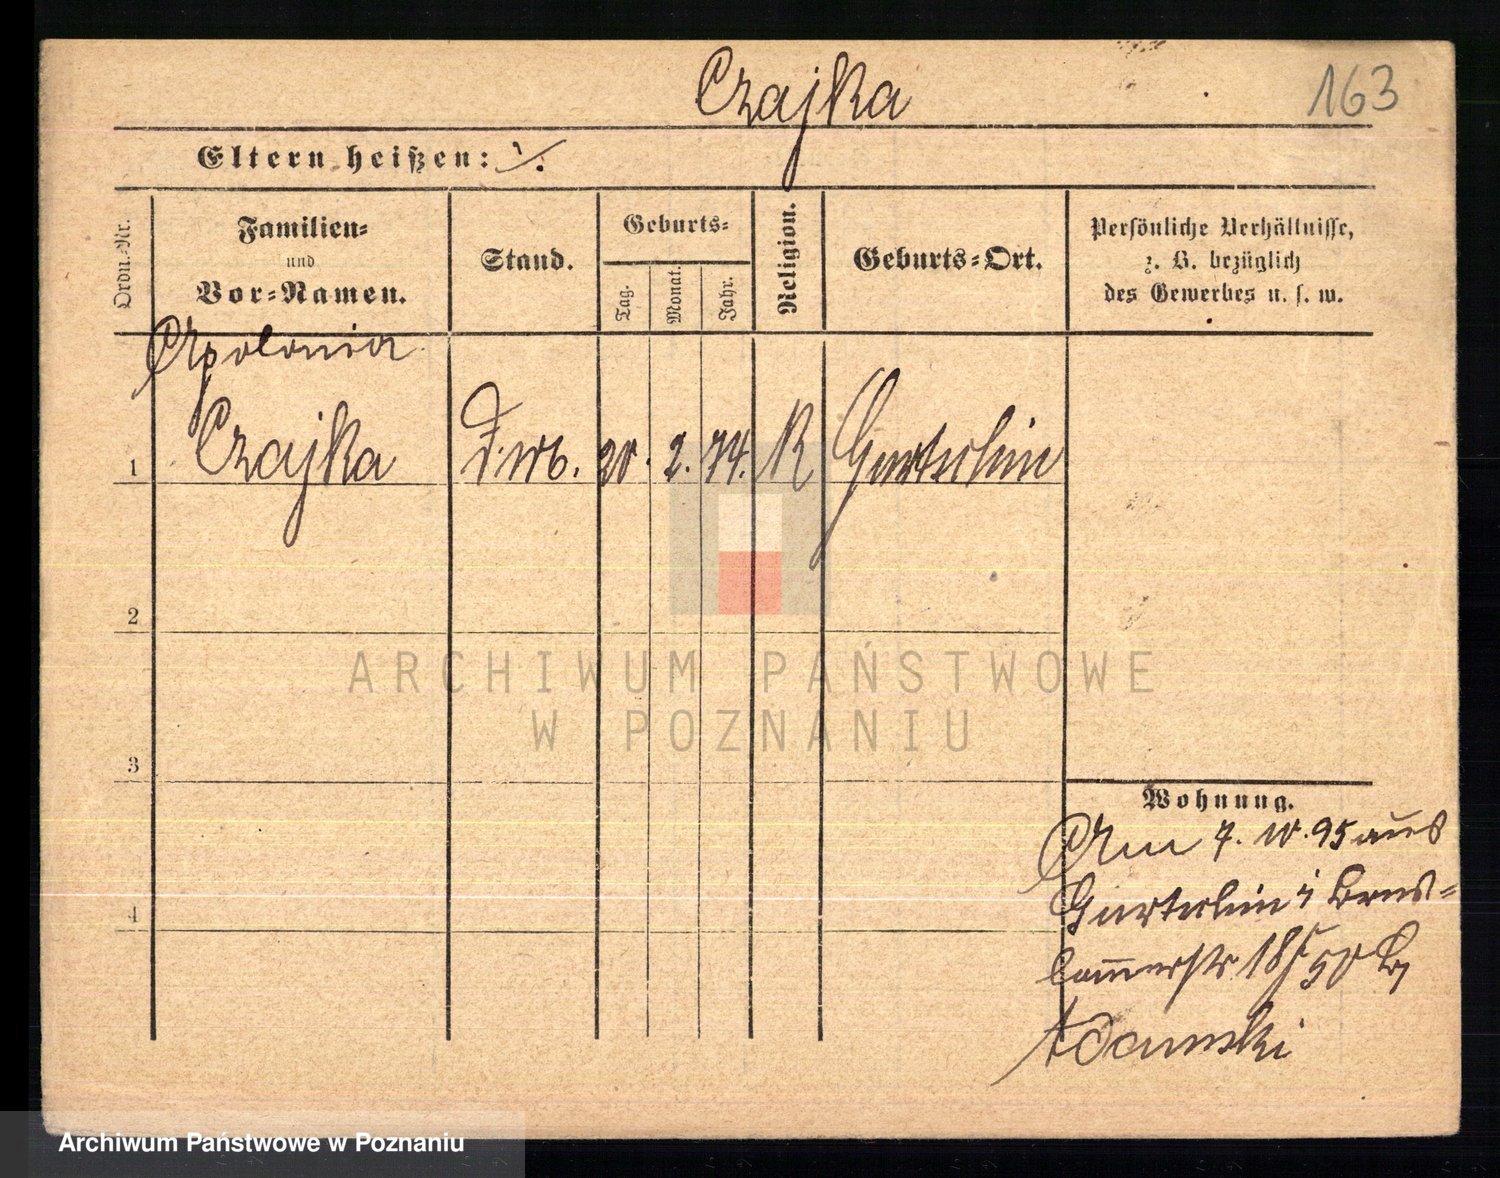 Czajka
163
Eltern heißen: ./.
Ordn.-Nr.
Familien-
und
Vor-Namen.
Stand.
Geburts-
Tag.
Monat.
Jahr.
Religion.
Geburts-Ort.
Persönliche Verhältnisse,
z. B. bezüglich
des Gewerbes u. s. w.
Apolonia
1 Czajka 20. 2. 74. K Gurtschin
2
3
4
Wohnung.
Am 7. 10. 95 aus
Gurtschin
18/50 b
Adamski
ARCHIWUM PAŃSTWOWE
W POZNANIU
Archiwum Państwowe w Poznaniu